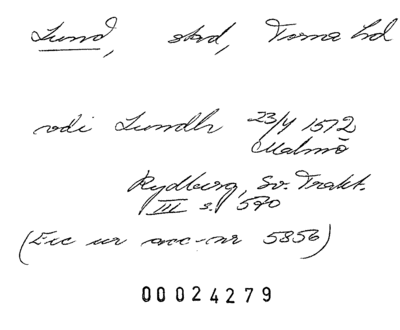 Lund, stad, Torna hd
vdi Lundh 23/4 1512
Malmö
Rydberg, Sv. Trakt.
III s. 590
(Exc ur acc-nr 5856)
00024279